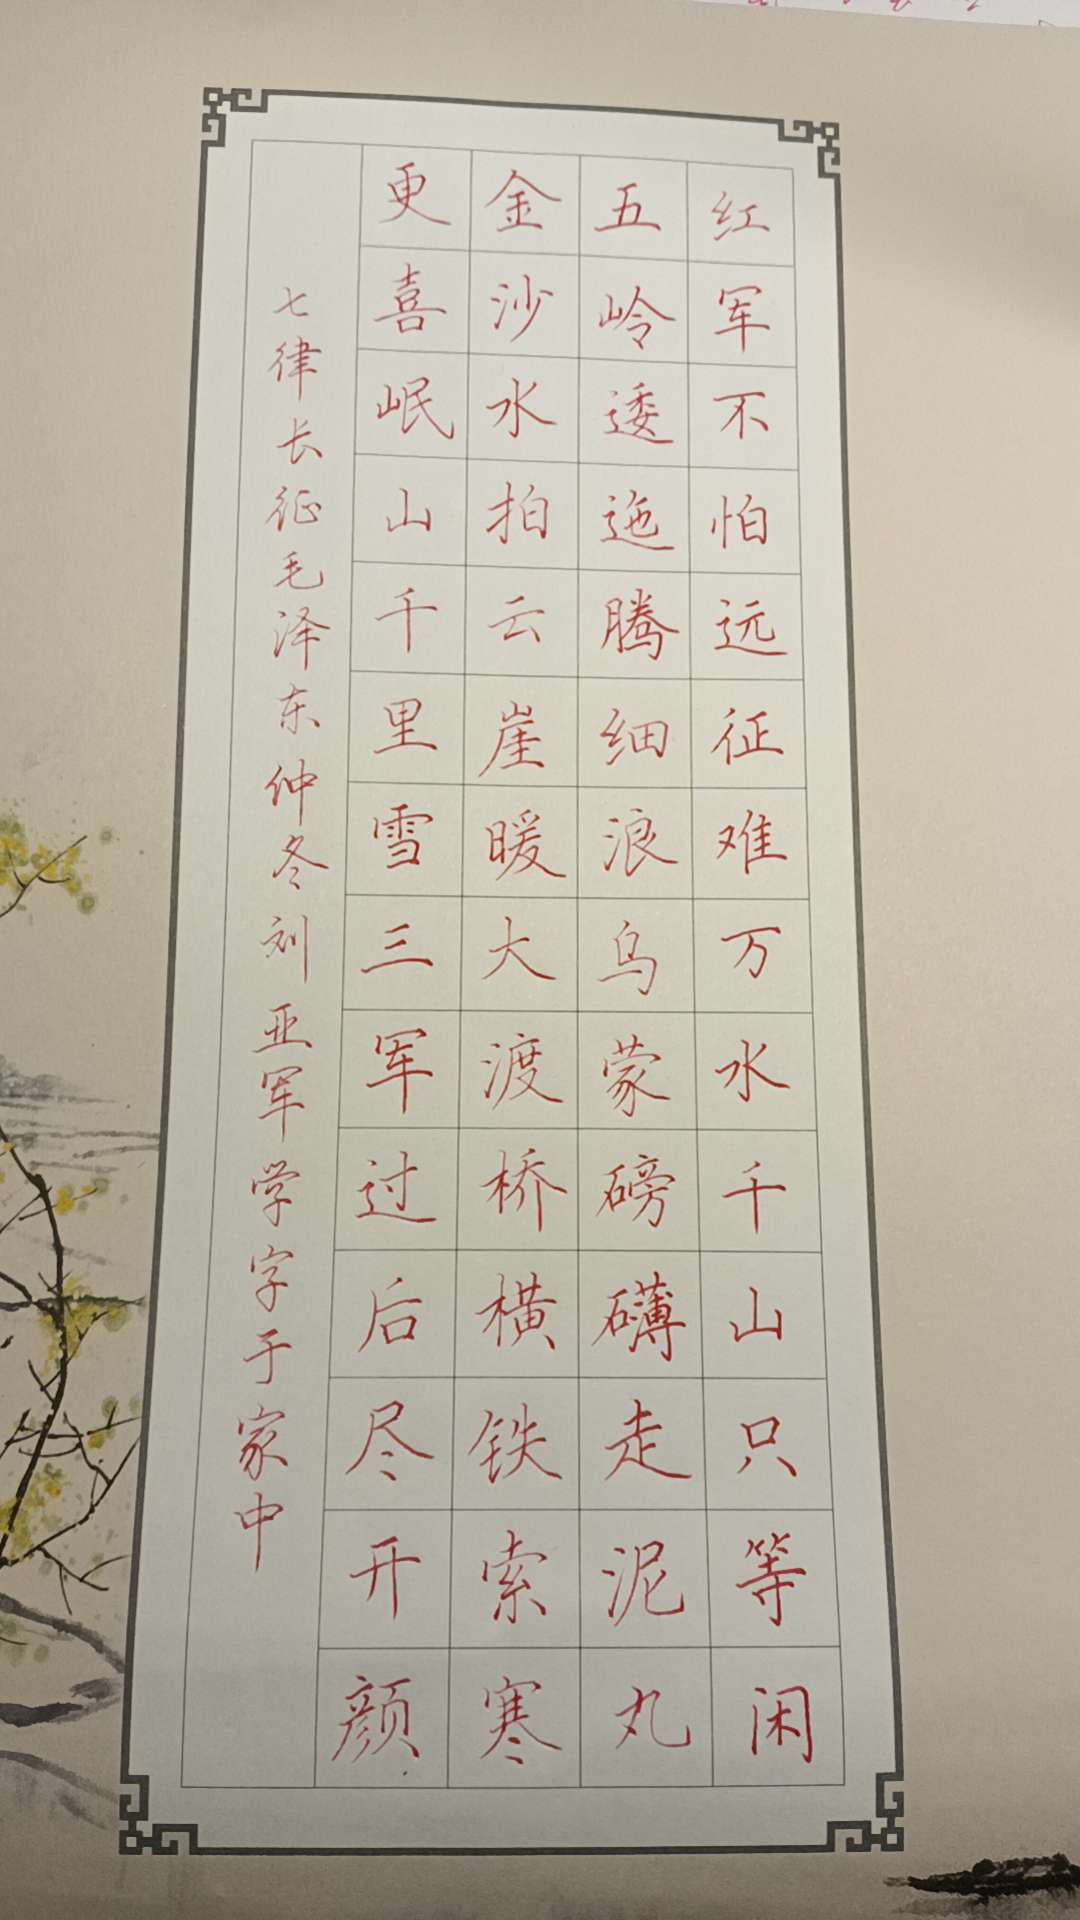 红军不怕远征难万水千山只等闲
五岭逶迤腾细浪乌蒙磅礴走泥丸
金沙水拍云崖暖大渡桥横铁索寒
更喜岷山千里雪三军过后尽开颜
七律长征毛泽东仲冬刘亚军学字于家中